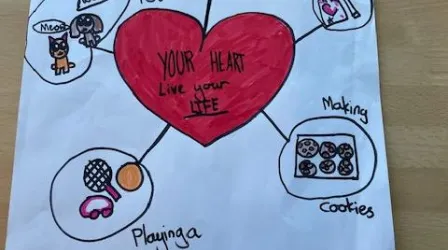 Meow
YOUR HEART
Live your
LIFE
Making
Cookies
Playing a